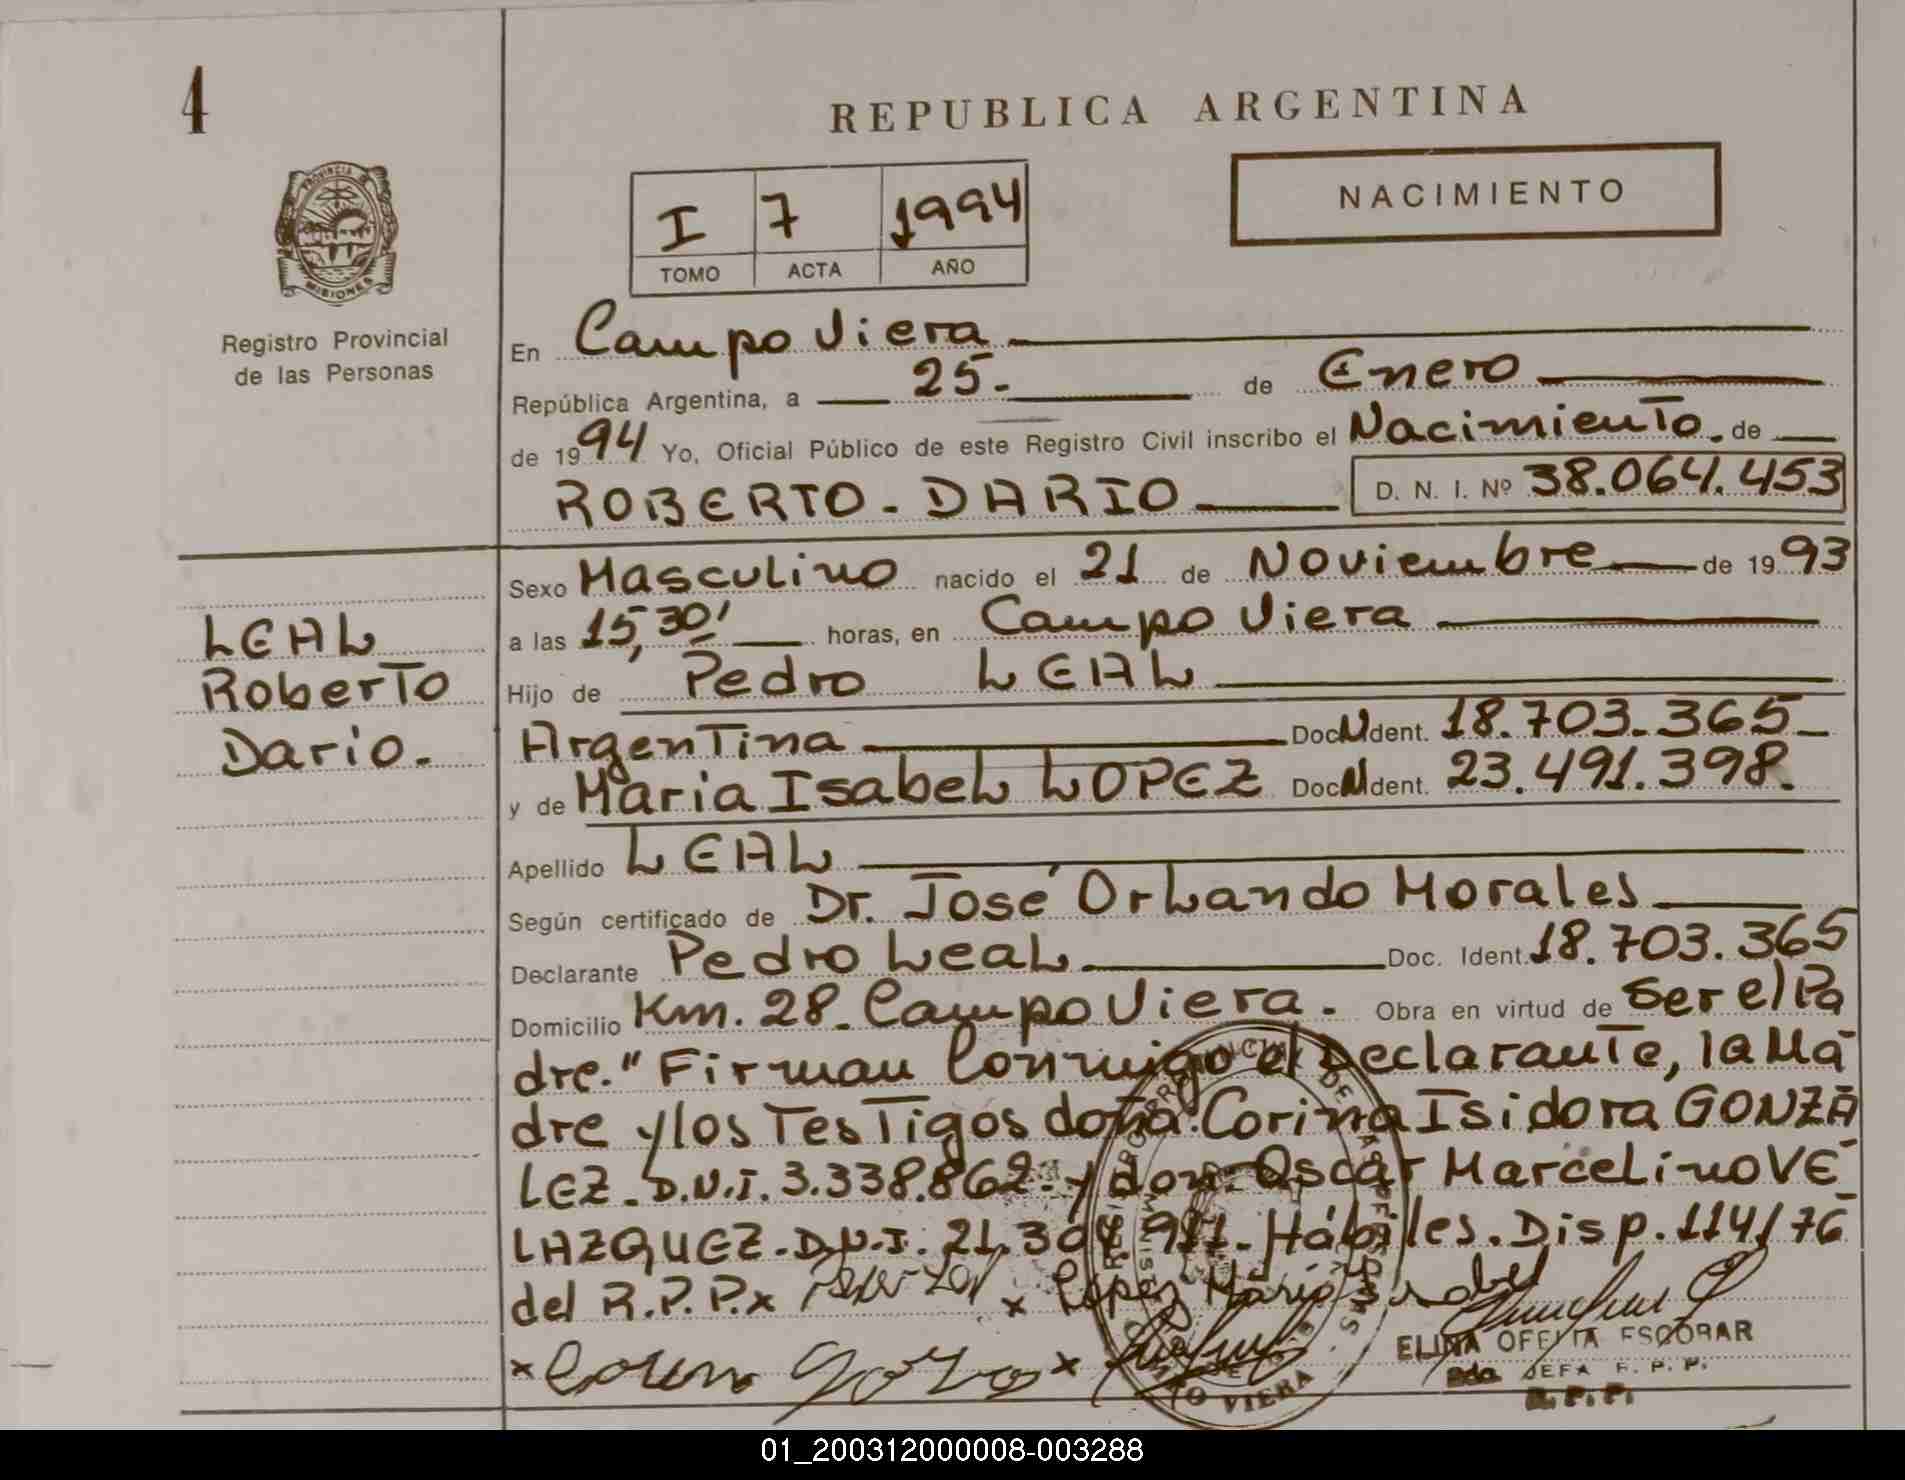 4
REPUBLICA ARGENTINA
PROVINCIA DE
MISIONES
Registro Provincial
de las Personas
I 7 1994
TOMO ACTA AÑO
NACIMIENTO
En Campo Viera
República Argentina, a 25- de Enero
de 1994 Yo, Oficial Público de este Registro Civil inscribo el Nacimiento. de
ROBERTO - DARIO D. N. I. Nº 38.064.453
LEAL
Roberto
Dario.
Sexo Masculino nacido el 21 de Noviembre de 1993
a las 15,30' horas, en Campo Viera
Hijo de Pedro LEAL
Argentina Doc. Ident. 18.703.365
y de Maria Isabel LOPEZ Doc. Ident. 23.491.398.
Apellido LEAL
Según certificado de Dr. José Orlando Morales
Declarante Pedro Leal Doc. Ident. 18.703.365
Domicilio Km. 28. Campo Viera. Obra en virtud de ser el Pa
dre." Firman Conmigo el Declarante, la Ma
dre y los Testigos doña: Corina Isidora GONZA
LEZ. D.N.I. 3.338.862. y don: Oscar Marcelino VE
LAZQUEZ. D.N.I. 21. 911. Hábiles. Disp. 114/76
del R.P.P. x x Lopez Maria Isabel
x x
ELINA OFELIA ESCOBAR
2da JEFA R. P. P.
R. P. P.
01_200312000008-003288